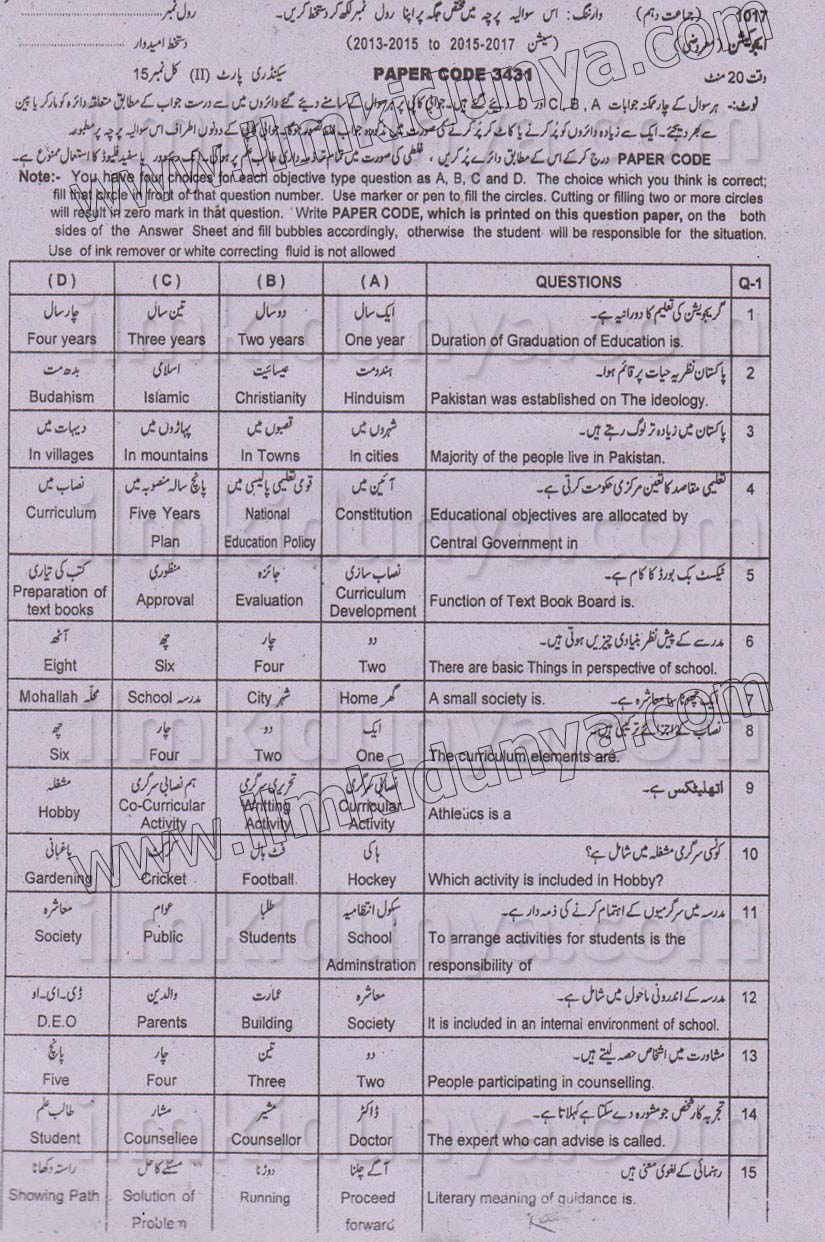 1017 (جماعت دہم) وارننگ: اس سوالیہ پرچہ میں مختص جگہ پر اپنا رول نمبر لکھ کر دستخط کریں۔ رول نمبر
ایجوکیشن (معروضی) (سیشن 2013-2015 to 2015-2017) دستخط امیدوار
وقت 20 منٹ PAPER CODE 3431 سیکنڈری پارٹ (II) کل نمبر 15
نوٹ:- ہر سوال کے چار ممکنہ جوابات A، B، C اور D دیئے گئے ہیں۔ جوابی کاپی پر ہر سوال کے سامنے دیئے گئے دائروں میں سے درست جواب کے مطابق متعلقہ دائرہ کو مارکر یا پین
سے بھر دیجئے۔ ایک سے زیادہ دائروں کو پُر کرنے یا کاٹ کر پُر کرنے کی صورت میں مذکورہ جواب غلط تصور ہوگا۔ جوابی کاپی کے دونوں اطراف اس سوالیہ پرچہ پر مطبوعہ
PAPER CODE درج کر کے اس کے مطابق دائرے پُر کریں، غلطی کی صورت میں تمام تر ذمہ داری طالب علم پر ہوگی۔ یا سفید فلیوڈ کا استعمال ممنوع ہے۔
Note:- You have four choices for each objective type question as A, B, C and D. The choice which you think is correct;
fill that circle in front of that question number. Use marker or pen to fill the circles. Cutting or filling two or more circles
will result in zero mark in that question. Write PAPER CODE, which is printed on this question paper, on the both
sides of the Answer Sheet and fill bubbles accordingly, otherwise the student will be responsible for the situation.
Use of ink remover or white correcting fluid is not allowed
( D ) ( C ) ( B ) ( A ) QUESTIONS Q-1
چار سال تین سال دو سال ایک سال گریجویشن کی تعلیم کا دورانیہ ہے۔ 1
Four years Three years Two years One year Duration of Graduation of Education is.
بدھ مت اسلامی عیسائیت ہندومت پاکستان نظریہ حیات پر قائم ہوا۔ 2
Budahism Islamic Christianity Hinduism Pakistan was established on The ideology.
دیہات میں پہاڑوں میں قصبوں میں شہروں میں پاکستان میں زیادہ تر لوگ رہتے ہیں۔ 3
In villages In mountains In Towns In cities Majority of the people live in Pakistan.
نصاب میں پانچ سالہ منصوبہ میں قومی تعلیمی پالیسی میں آئین میں تعلیمی مقاصد کا تعین مرکزی حکومت کرتی ہے۔ 4
Curriculum Five Years National Constitution Educational objectives are allocated by
Plan Education Policy Central Government in
کتب کی تیاری منظوری جائزہ نصاب سازی ٹیکسٹ بک بورڈ کا کام ہے۔ 5
Preparation of Approval Evaluation Curriculum Function of Text Book Board is.
text books Development
آٹھ چھ چار دو مدرسے کے پیش نظر بنیادی چیزیں ہوتی ہیں۔ 6
Eight Six Four Two There are basic Things in perspective of school.
Mohallah محلہ School مدرسہ City شہر Home گھر A small society is. ایک چھوٹا سا معاشرہ ہے۔ 7
چھ چار دو ایک نصاب کے اجزائے ترکیبی ہیں۔ 8
Six Four Two One The curriculum elements are.
مشغلہ ہم نصابی سرگرمی تحریری سرگرمی نصابی سرگرمی اتھلیٹکس ہے۔ 9
Hobby Co-Curricular Writting Curricular Athletics is a
Activity Activity Activity
باغبانی کرکٹ فٹ بال ہاکی کونسی سرگرمی مشغلہ میں شامل ہے؟ 10
Gardening Cricket Football Hockey Which activity is included in Hobby?
معاشرہ عوام طلبا سکول انتظامیہ مدرسہ میں سرگرمیوں کے اہتمام کرنے کی ذمہ دار ہے۔ 11
Society Public Students School To arrange activities for students is the
Adminstration responsibility of
ڈی۔ای۔او والدین عمارت معاشرہ مدرسہ کے اندرونی ماحول میں شامل ہے۔ 12
D.E.O Parents Building Society It is included in an internal environment of school.
پانچ چار تین دو مشاورت میں اشخاص حصہ لیتے ہیں۔ 13
Five Four Three Two People participating in counselling.
طالب علم مشار مشیر ڈاکٹر تجربہ کار شخص جو مشورہ دے سکتا ہے کہلاتا ہے۔ 14
Student Counsellee Counsellor Doctor The expert who can advise is called.
راستہ دکھانا مسئلے کا حل دوڑنا آگے چلنا رہنمائی کے لغوی معنی ہیں 15
Showing Path Solution of Running Proceed Literary meaning of guidance is.
Problem forward
www.ilmkidunya.com